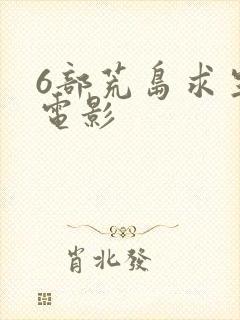 6部荒島求生
電影
肖北發